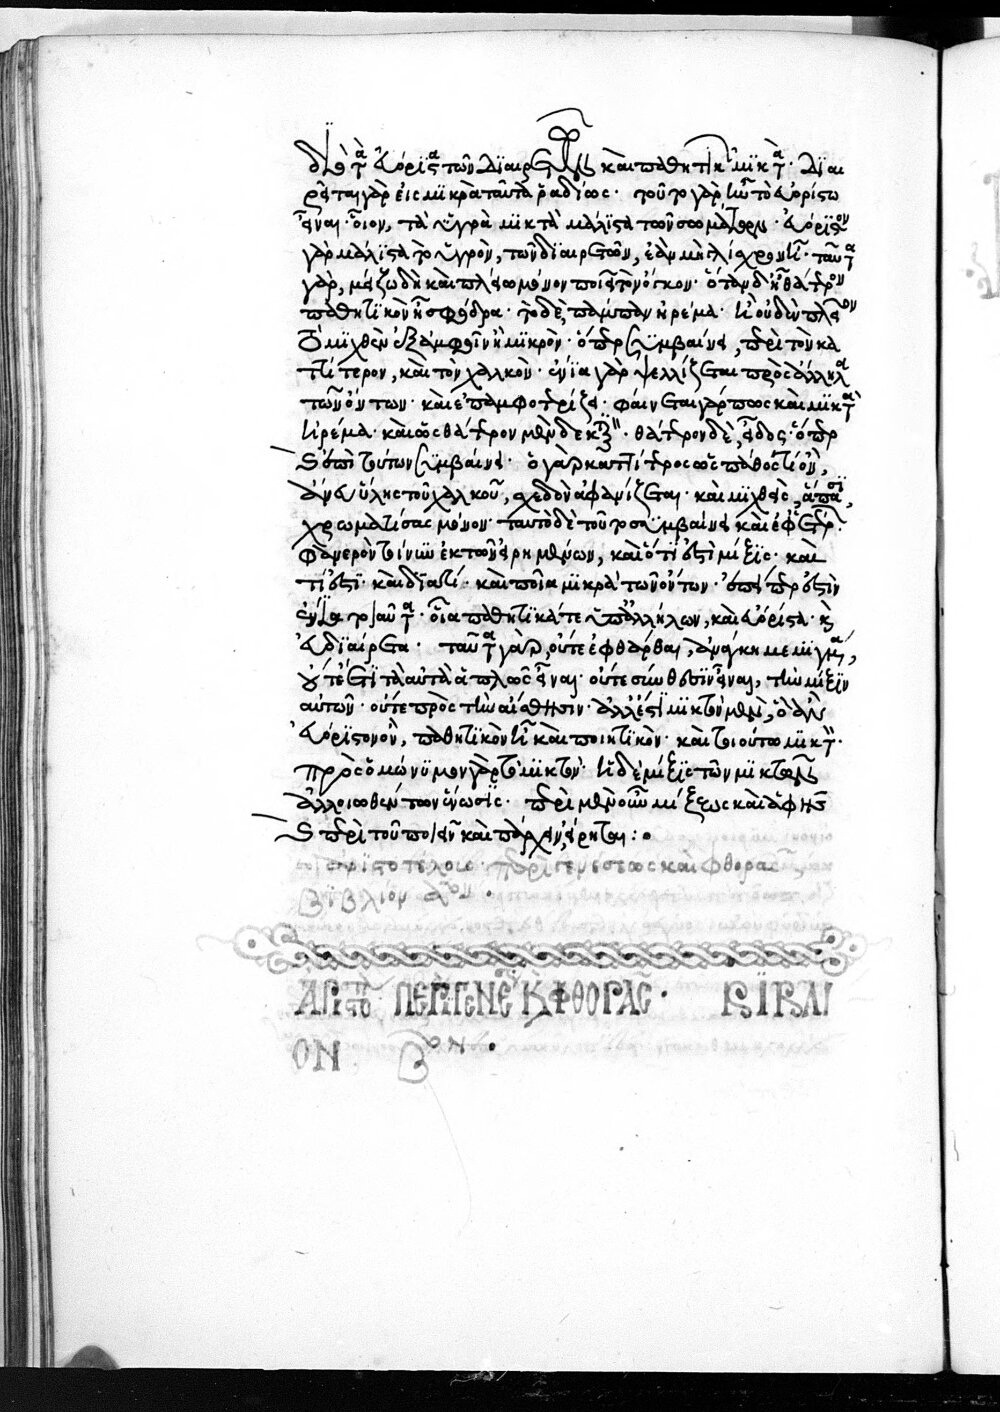 δὲ τὰ εὐόριστα τῶν διαιρετῶν καὶ παθητικῶν μικτά· διαι
ρεῖται γὰρ εἰς μικρὰ ταῦτα ῥαδίως· τοῦτο γὰρ ἦν τὸ εὐορίστω
εἶναι· οἷον, τὰ ὑγρὰ μικτὰ μάλιστα τῶν σωμάτων· εὐόριστον
γὰρ μάλιστα τὸ ὑγρὸν, τῶν διαιρετῶν, ἐὰν μὴ γλίσχρον ἦ· ταῦτα
γὰρ, μείζω δὴ καὶ πλείω μόνον ποιεῖ τὸν ὄγκον· ὅταν δ' ἢ θάτερον
παθητικὸν ἢ σφόδρα· τὸ δὲ πάμπαν ἠρέμα· ἢ οὐδὲν πλεῖον
τὸ μιχθὲν ἐξ ἀμφοῖν ἢ μικρὸν· ὅπερ συμβαίνει περὶ τὸν κα
ττίτερον, καὶ τὸν χαλκὸν· ἔνια γὰρ ψελλίζεται πρὸς ἄλληλα
τῶν ὄντων· καὶ ἐπαμφοτερίζει· φαίνεται γάρ πως καὶ μικτὰ
ἠρέμα· καὶ ὡς θάτερον μὲν δεκτικόν· θάτερον δὲ, εἶδος· ὅπερ
ἐπὶ τούτων συμβαίνει· ὁ γὰρ καττίτερος ὡς πάθος τι ὂν,
ἄνευ ὕλης τοῦ χαλκοῦ, σχεδὸν ἀφανίζεται· καὶ μιχθεὶς, ἄπεισι,
χρωματίσας μόνον· ταυτὸ δὲ τοῦτο συμβαίνει καὶ ἐφ' ἑτέρων·
φανερὸν τοίνυν ἐκ τῶν εἰρημένων, καὶ ὅτι ἐστὶ μίξις· καὶ
τί ἐστι· καὶ διατί· καὶ ποῖα μικτὰ τῶν ὄντων· ἐπείπερ ἐστὶν
ἔνια τοιαῦτα· οἷα παθητικά τε ὑπ' ἀλλήλων, καὶ εὐόριστα· καὶ
εὐδιαίρετα· ταῦτα γὰρ, οὔτε ἐφθάρθαι, ἀνάγκη μεμιγμένα,
οὔτε ἔτι ταὐτὰ ἁπλῶς εἶναι· οὔτε σύνθεσιν εἶναι, τὴν μίξιν
αὐτῶν· οὔτε πρὸς τὴν αἴσθησιν· ἀλλ' ἔστι μικτὸν μὲν, ὃ ἂν
εὐόριστον ὂν, παθητικὸν ἦ καὶ ποιητικὸν· καὶ τοιούτω μικτὸν·
πρὸς ὁμώνυμον γὰρ τὸ μικτὸν· ἡ δὲ μίξις τῶν μικτῶν
ἀλλοιωθέντων ἕνωσις· περὶ μὲν οὖν μίξεως καὶ ἁφῆς
καὶ περὶ τοῦ ποιεῖν καὶ πάσχειν, εἴρηται:
ἀριστοτέλους περὶ γενέσεως καὶ φθορᾶς
βιβλίον αον.
ΑΡΙϹΤΟ ΠΕΡΙ ΓΕΝΕ Κ ΦΘΟΡΑϹ· ΒΙΒΛΙ
ΟΝ Βον.